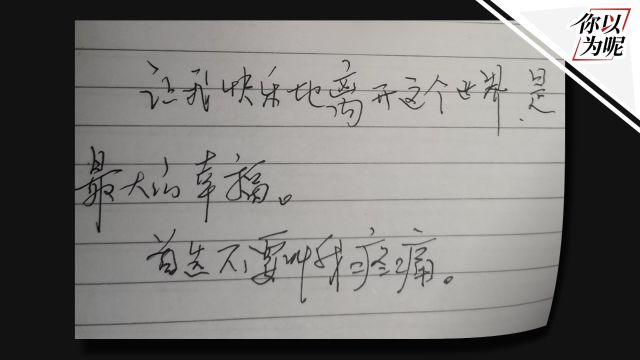 你以
为呢
让我快乐地离开这个世界是
最大的幸福。
首先不要叫我疼痛。